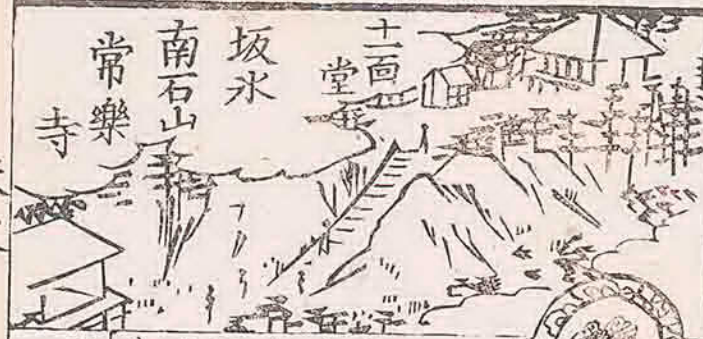 十一面
堂
坂水
南石山
常樂
寺